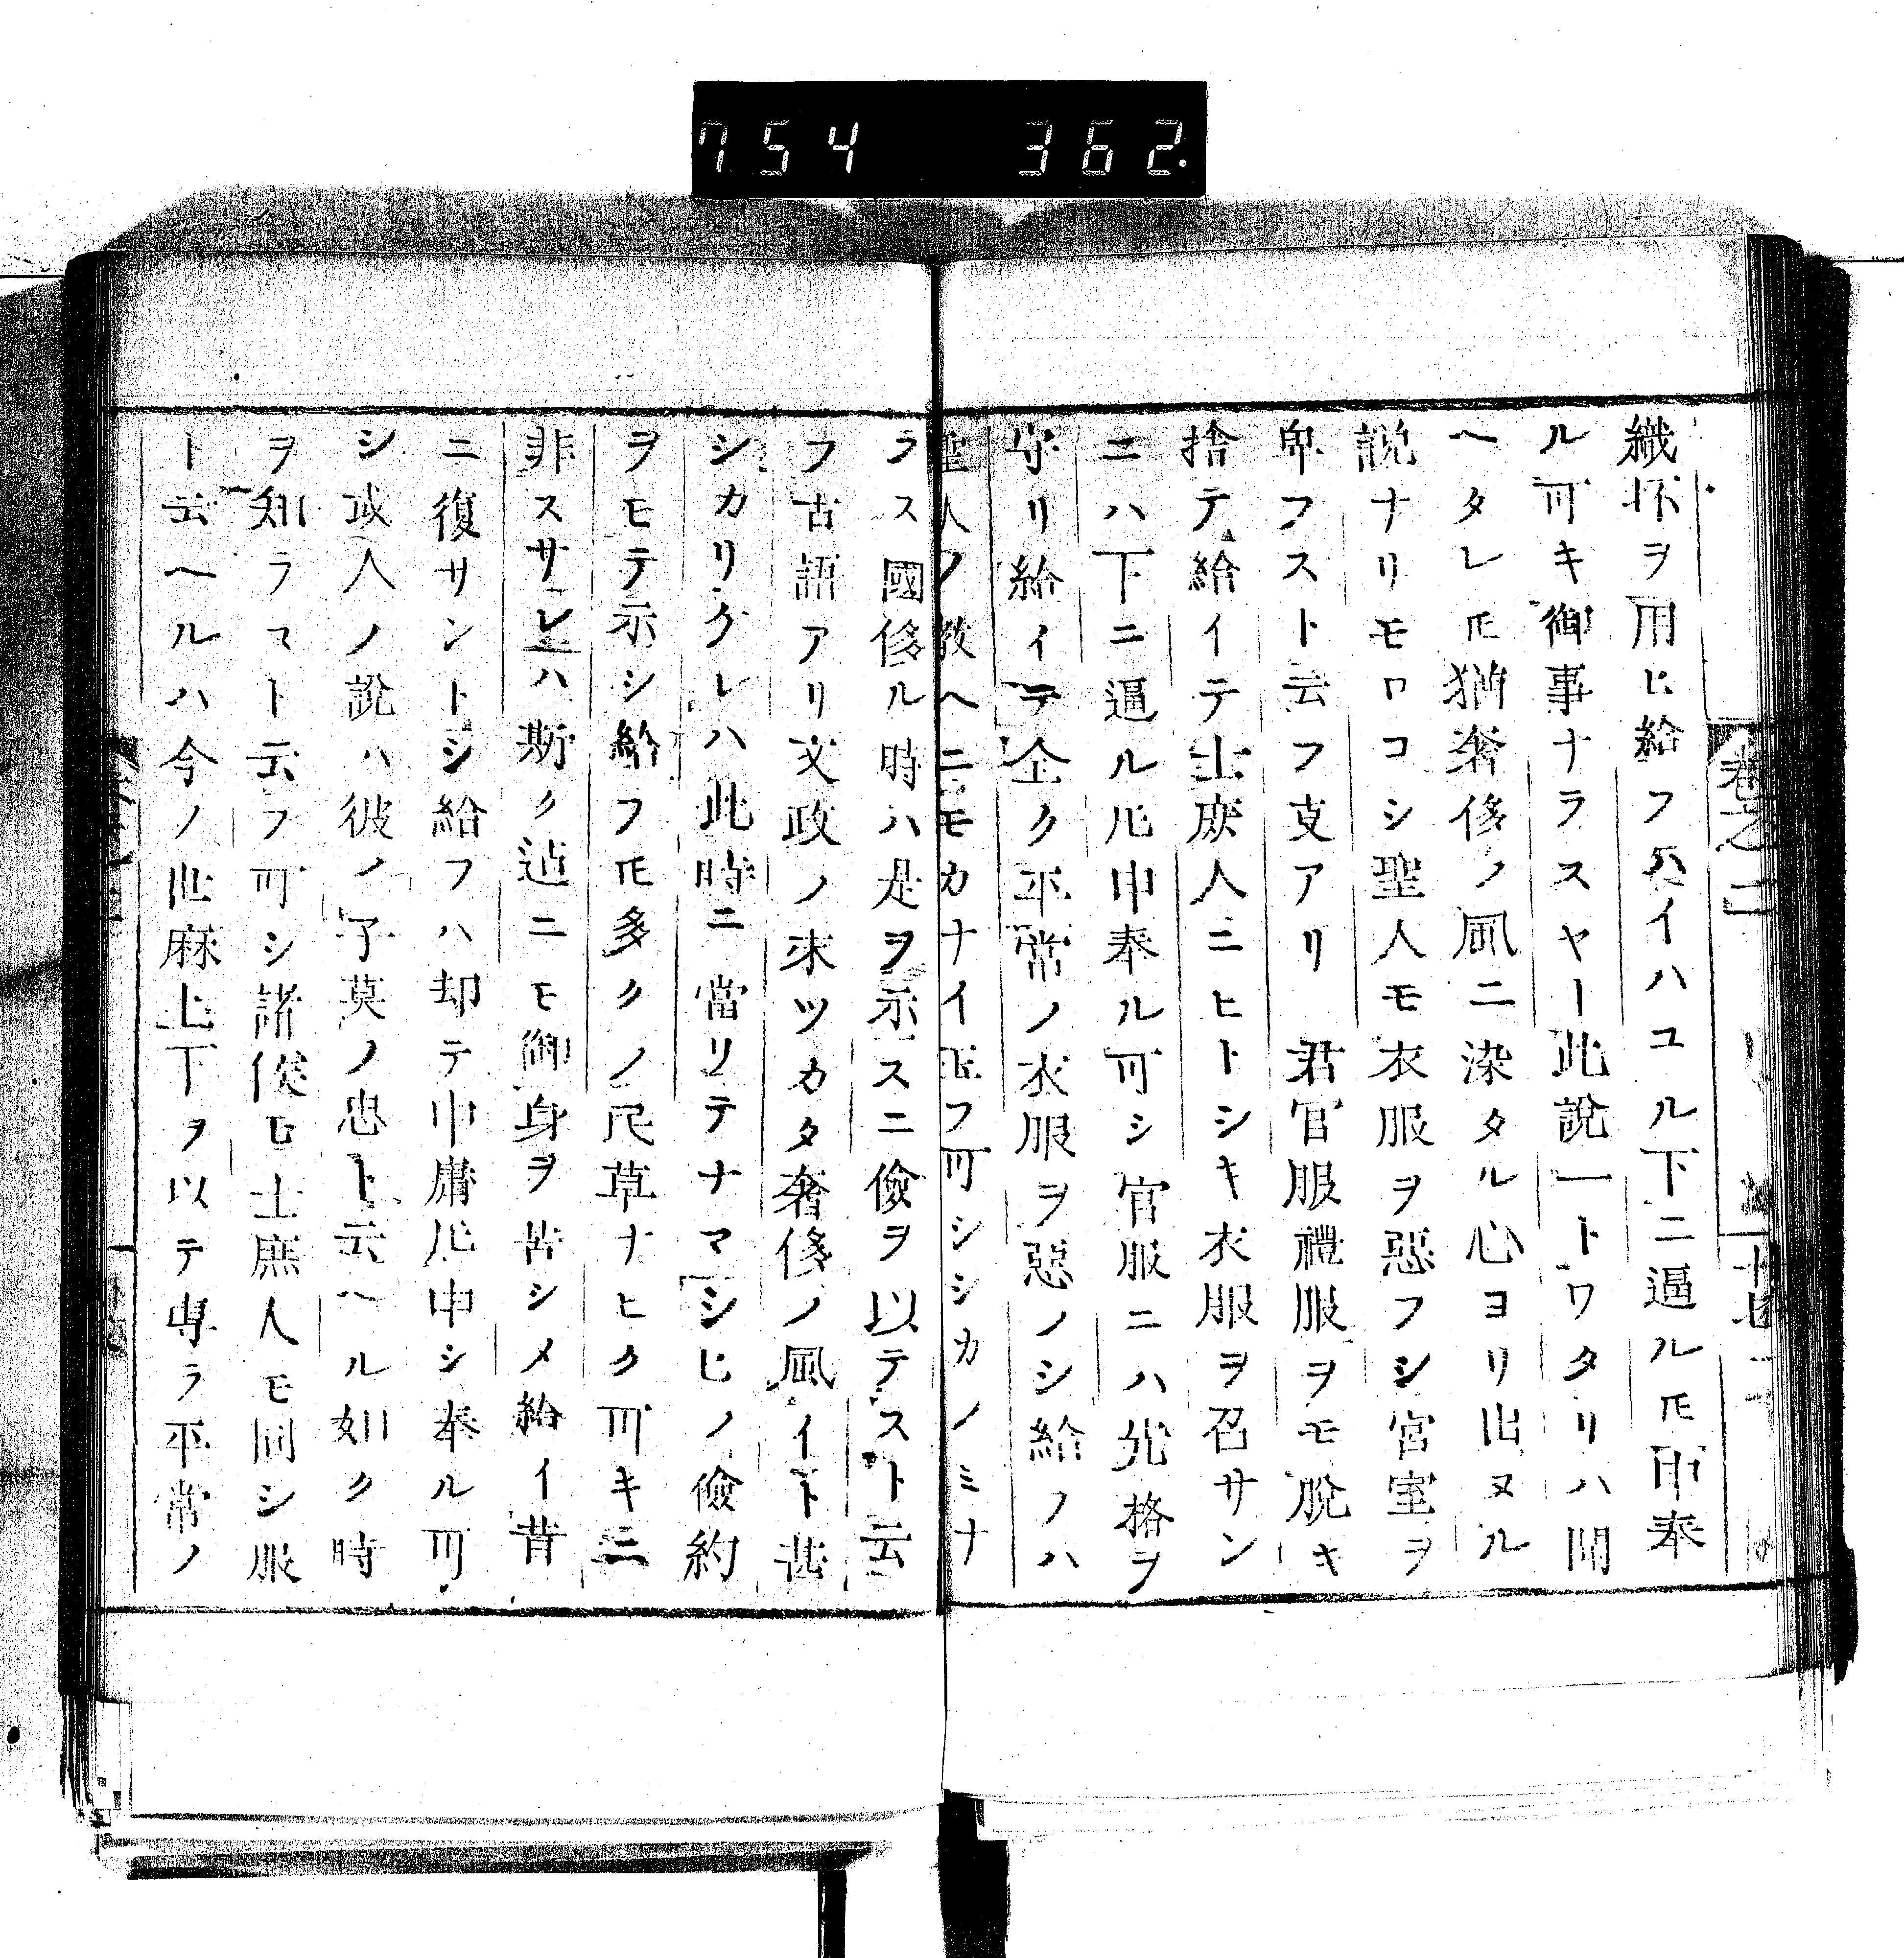 754 362.
卷之二
十七
織抔ヲ用ヒ給フハイハユル下ニ逼ル𪜈申奉
ル可キ御事ナラスヤー此說一トワタリハ聞
ヘタレ𪜈猶奢侈ノ風ニ染タル心ヨリ出ヌル
說ナリモロコシ聖人モ衣服ヲ惡フシ宮室ヲ
卑フスト云フ支アリ 君官服禮服ヲモ脫キ
捨テ給イテ士庻人ニヒトシキ衣服ヲ召サン
ニハ下ニ逼ル𪜈申奉ル可シ官服ニハ先格ヲ
守リ給イテ全ク平常ノ衣服ヲ惡ノシ給ノハ
聖人ノ教ヘニモカナイ玉フ可シシカノミナ
ラス國侈ル時ハ是ヲ示スニ儉ヲ以テスト云
フ古語アリ文政ノ末ツカタ奢侈ノ風イト甚
シカリケレハ此時ニ當リテナマシヒノ儉約
ヲモテ示シ給フ𪜈多クノ民草ナヒク可キニ
非スサレハ斯ク迠ニモ御身ヲ苦シメ給イ昔
ニ復サントシ給フハ却テ中庸𪜈申シ奉ル可
シ或人ノ說ハ彼ノ子莫ノ忠ト云ヘル如ク時
ヲ知ラマト云フ可シ諸侯モ士庶人モ同シ服
ト云ヘルハ今ノ世麻上下ヲ以テ専ラ平常ノ